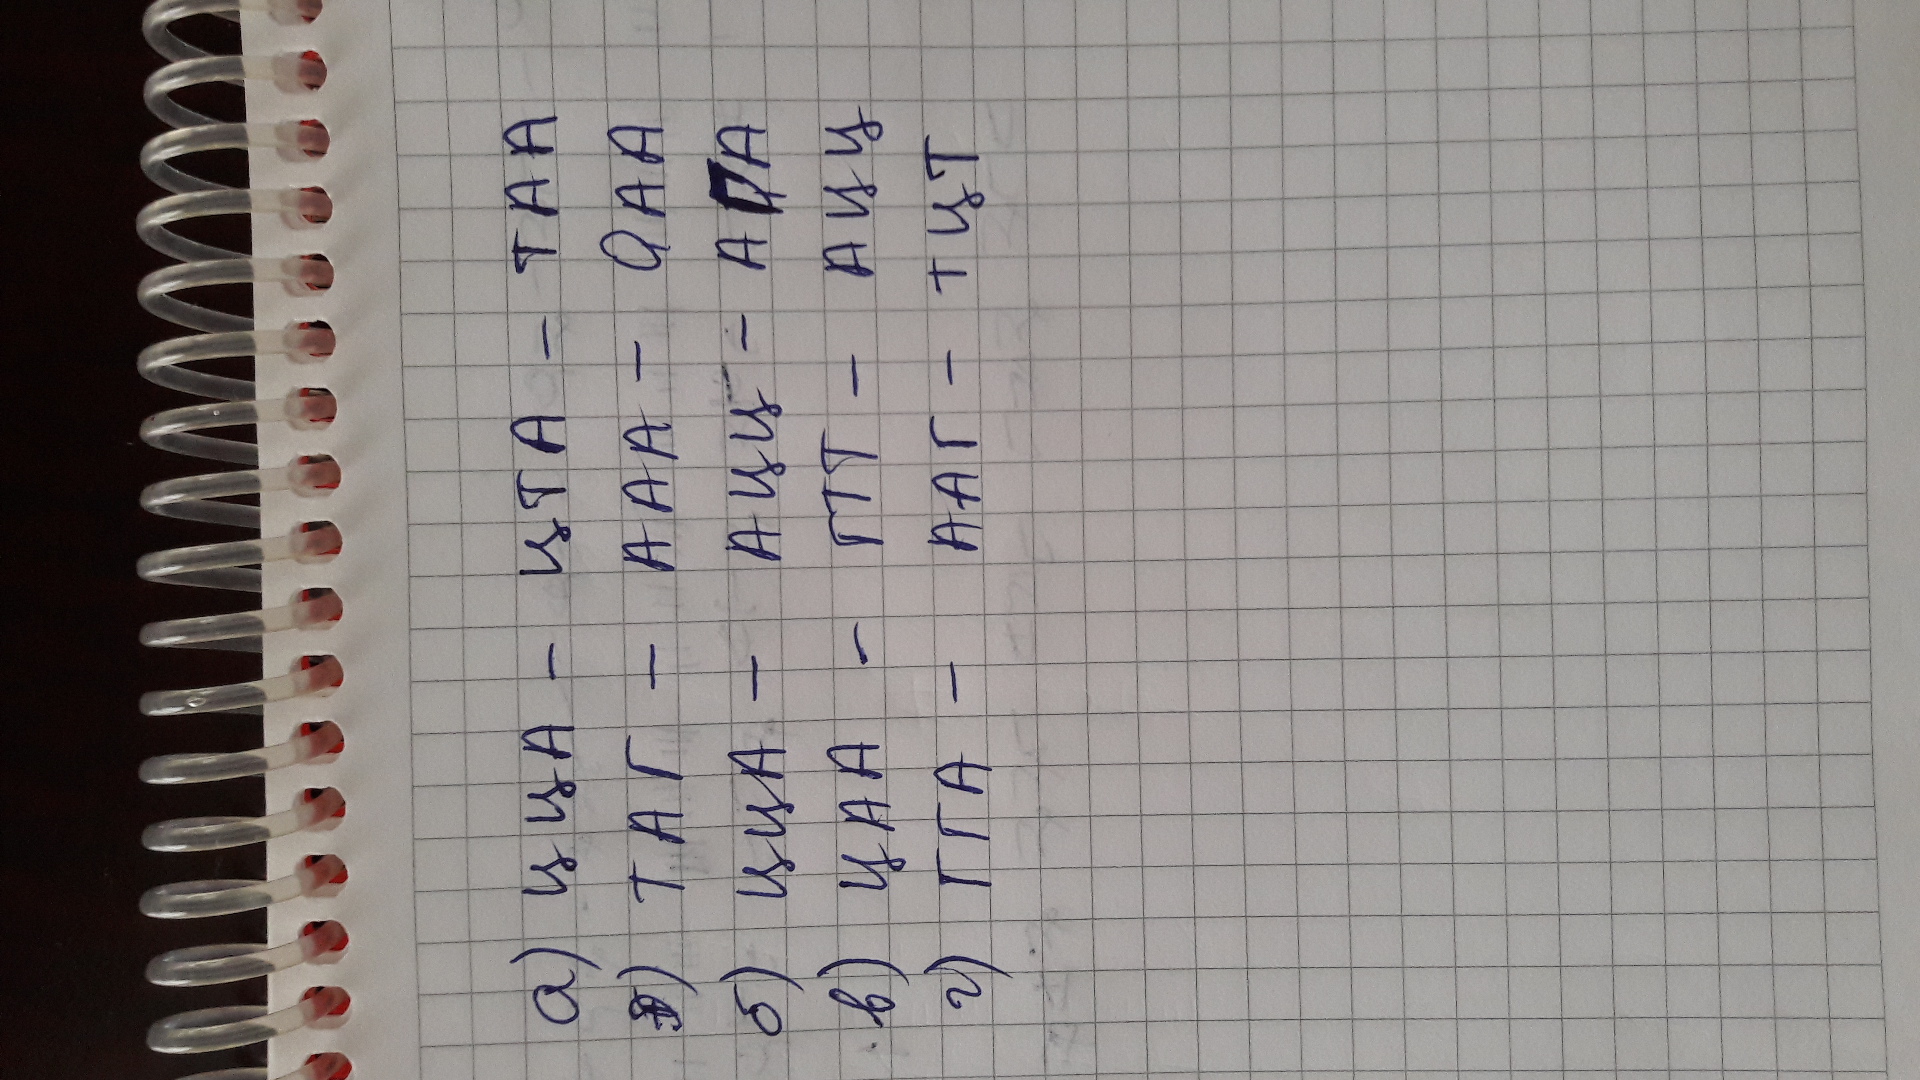 а) ЦЦА - ЦТА - ТАА
ТАГ - ААА -
б) ЦЦА - АЦЦ -
в) ЦАА - ГТТ - АЦЦ
г) ГТА - ААГ - ТЦТ